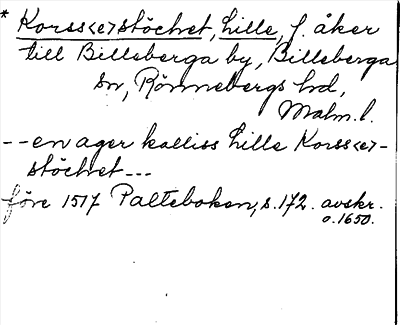 * Korss<e>støchet, lille, f. åker
till Billeberga by, Billeberga
sn, Rönnebergs hd,
Malm. l.
-- en ager kalliss lille Korss<e>-
støchet ---
före 1517 Palteboken, s. 172. avskr.
o. 1650.